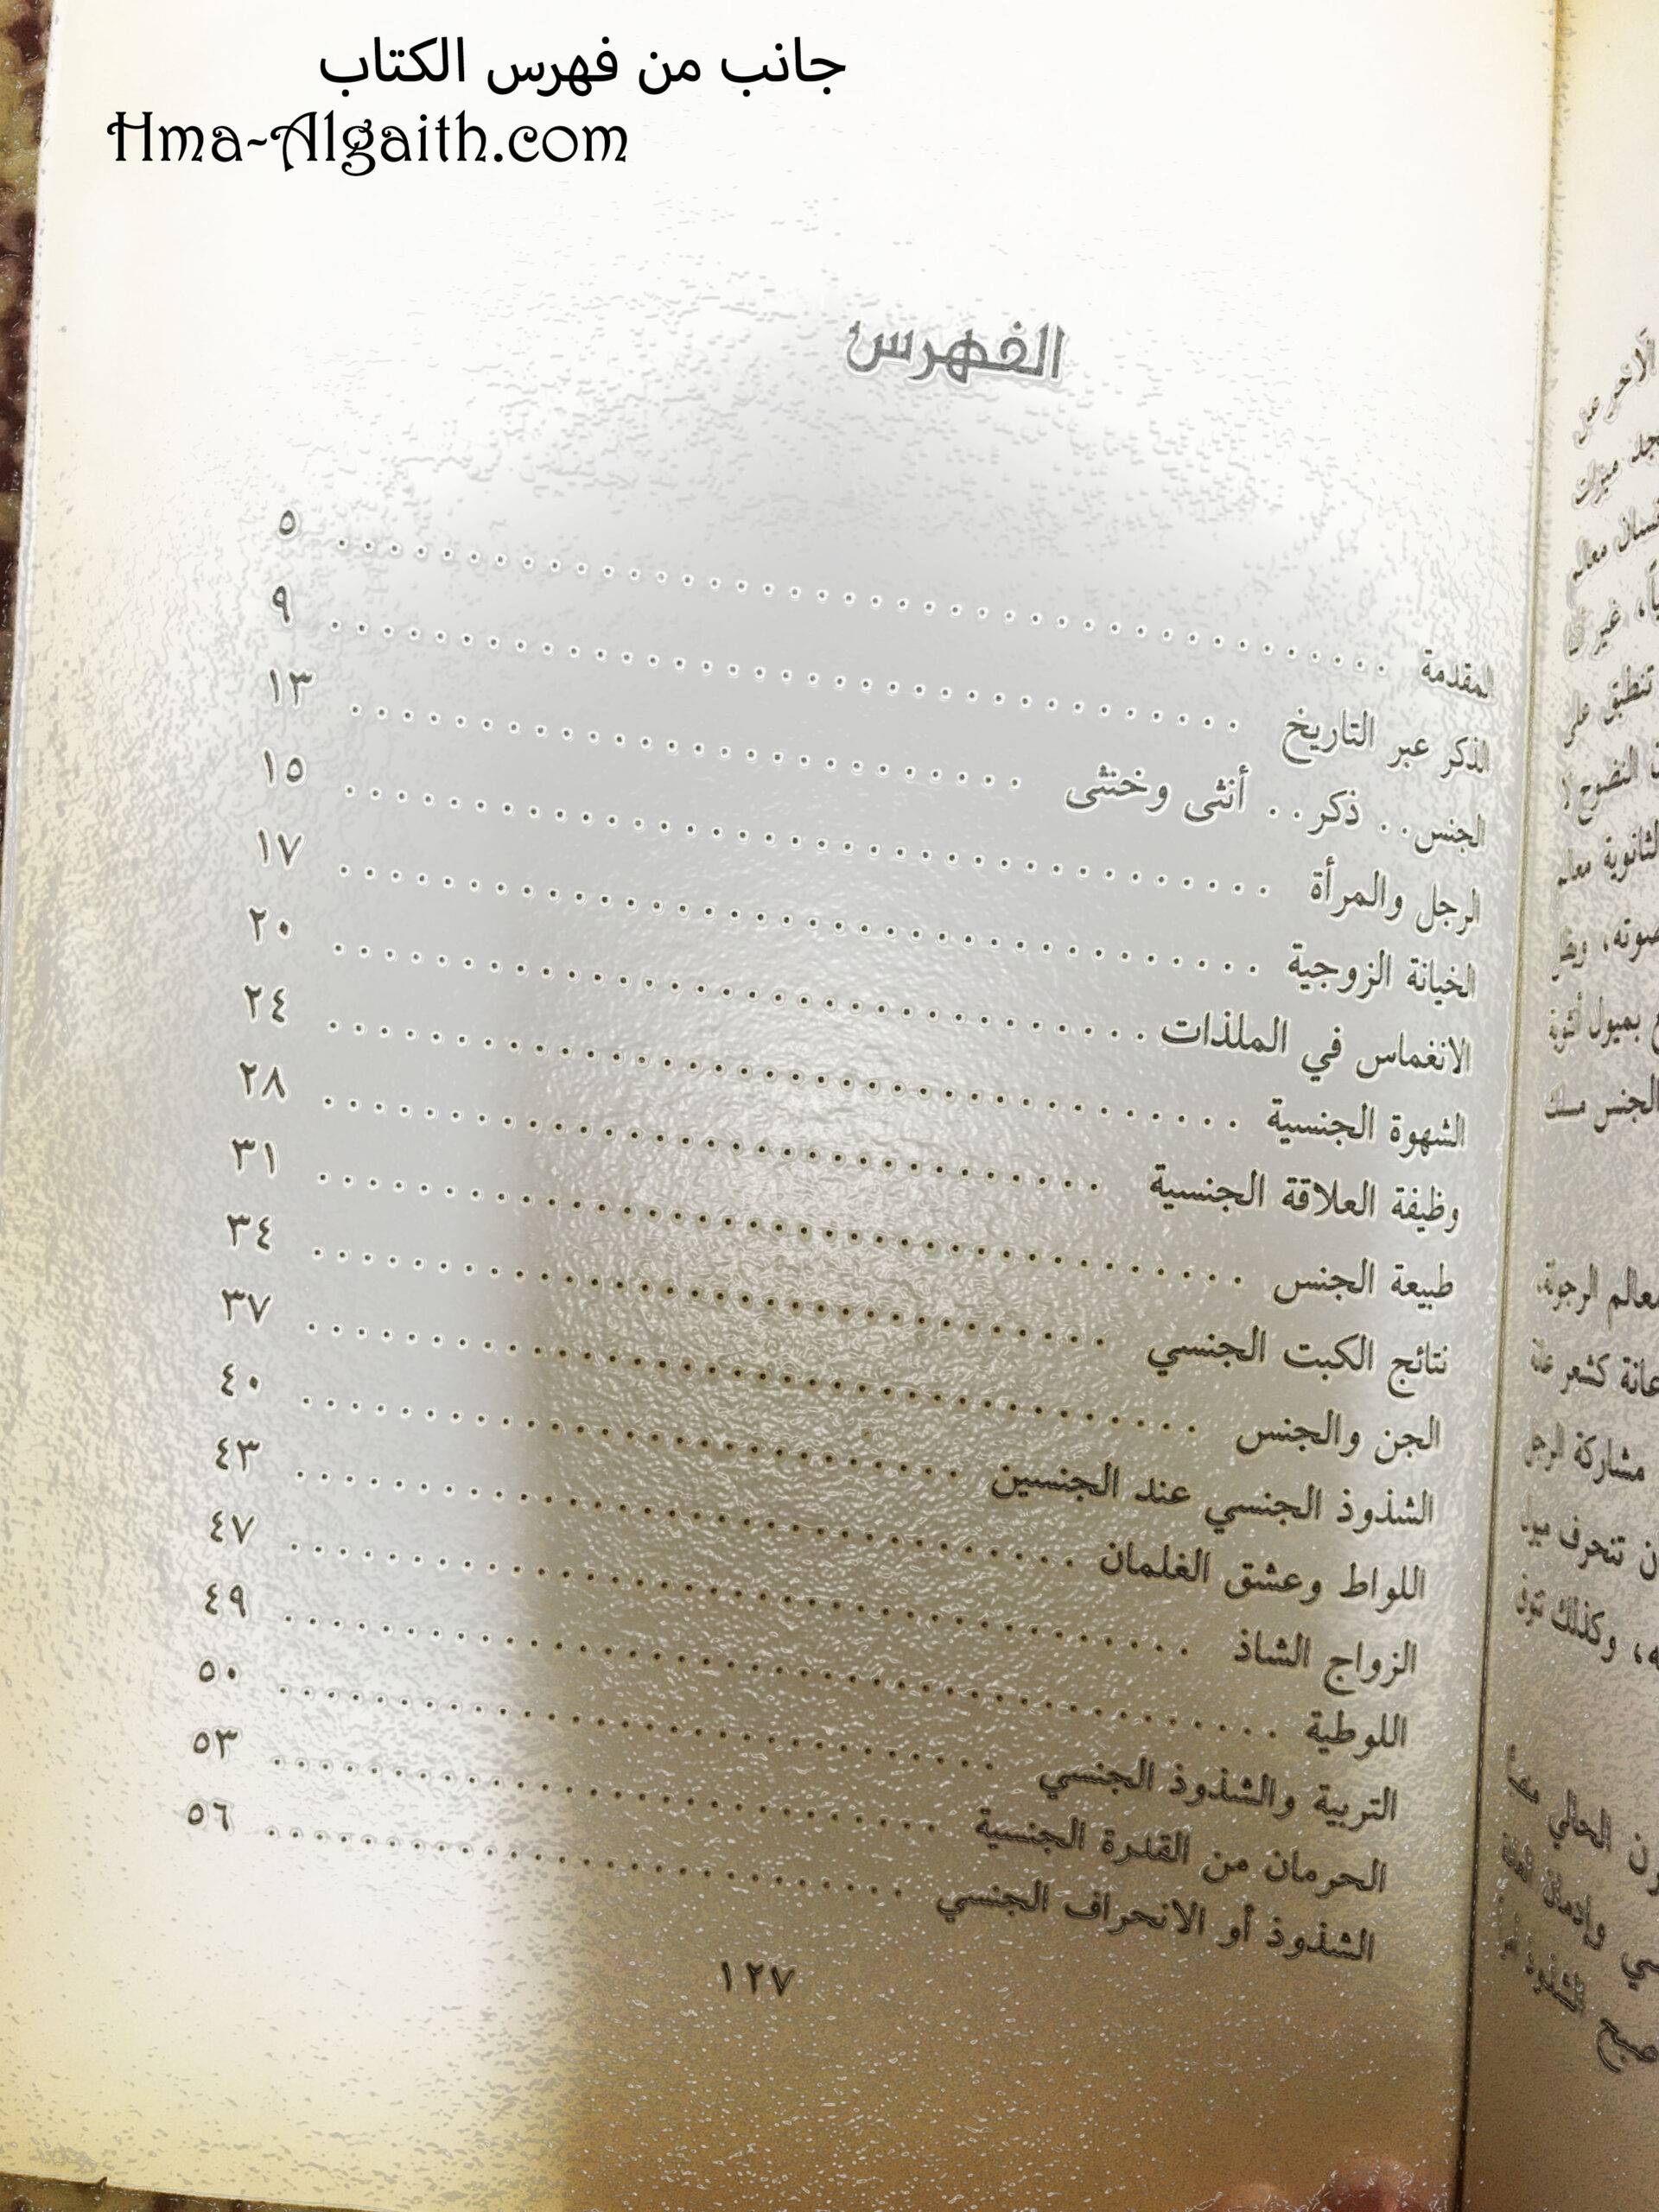 جانب من فهرس الكتاب
Hma-Algaith.com
الفهرس
المقدمة ٥
الذكر عبر التاريخ ٩
الجنس . . ذكر . . أنثى وخنثى ١٣
الرجل والمرأة ١٥
الخيانة الزوجية ١٧
الانغماس في الملذات ٢٠
الشهوة الجنسية ٢٤
وظيفة العلاقة الجنسية ٢٨
طبيعة الجنس ٣١
نتائج الكبت الجنسي ٣٤
الجن والجنس ٣٧
الشذوذ الجنسي عند الجنسين ٤٠
اللواط وعشق الغلمان ٤٣
الزواج الشاذ ٤٧
اللوطية ٤٩
التربية والشذوذ الجنسي ٥٠
الحرمان من القدرة الجنسية ٥٣
الشذوذ أو الانحراف الجنسي ٥٦
١٢٧